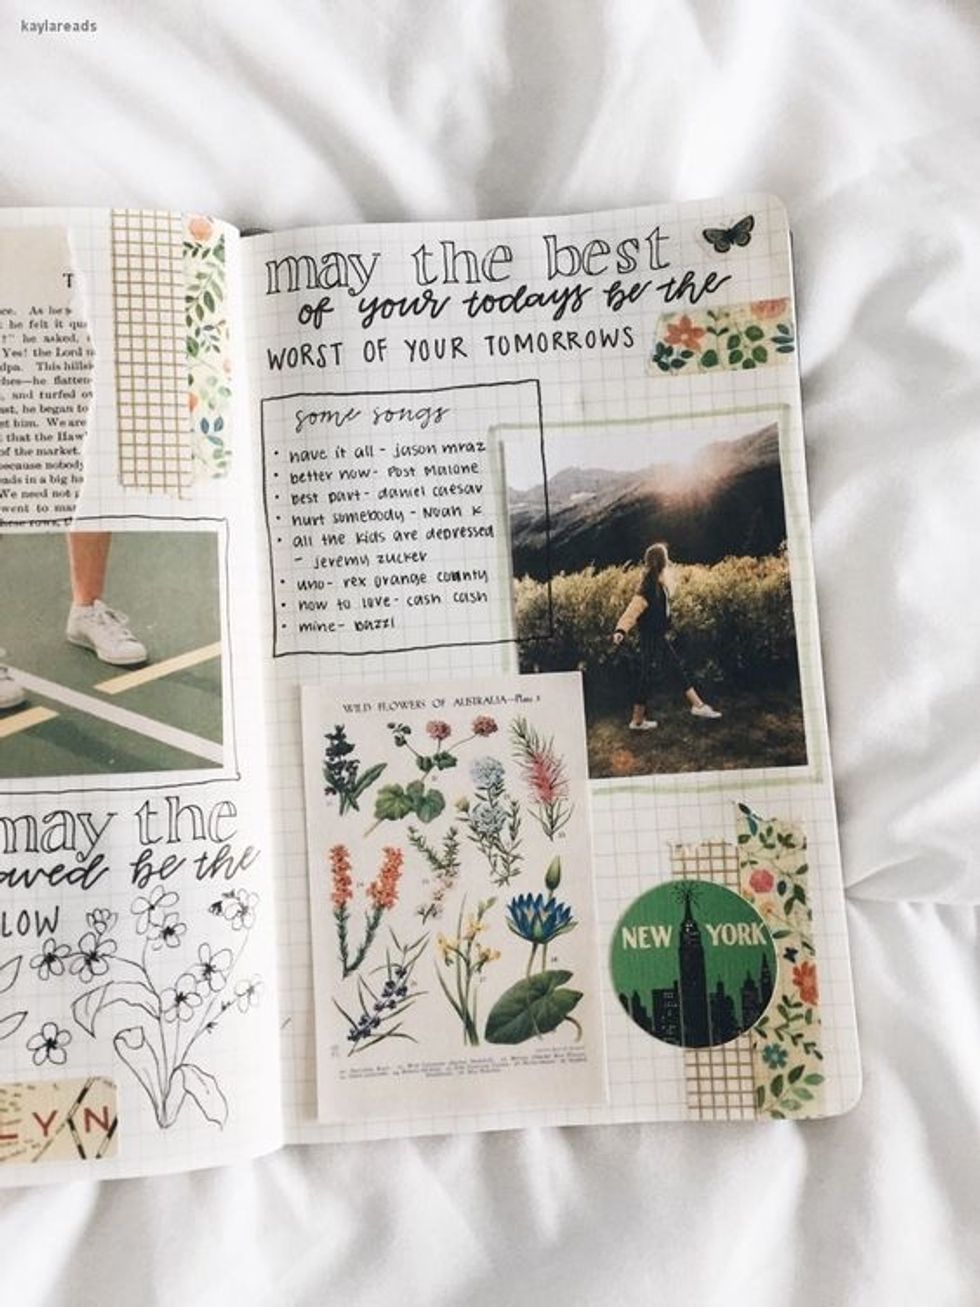 kaylareads
T
ce. As he s
he felt it qu
!" he asked,
Yes! the Lord
dpa. This hills
ches—he flatten
, and turfed o
ast, he began to
et him. We are
that the Haw
of the market.
because nobody
eads in a big ha
We need not
went to mar
these rows, t
may the
aved be the
LOW
LYN
may the best
of your todays be the
WORST OF YOUR TOMORROWS
some songs
• have it all - jason mraz
• better now - Post Malone
• best part - daniel caesar
• hurt somebody - Noah K
• all the kids are depressed
- jeremy zucker
• uno - rex orange county
• how to love - cash cash
• mine - bazzi
WILD FLOWERS OF AUSTRALIA—Plate
NEW YORK